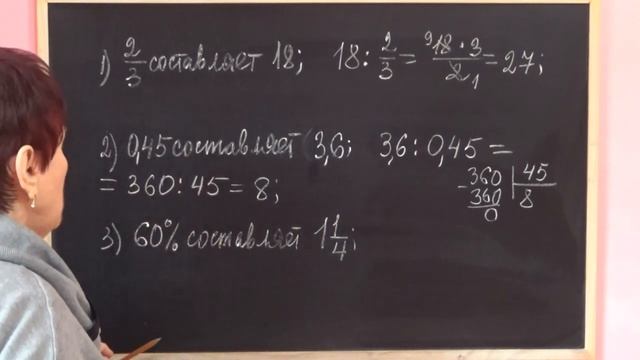 1) 2/3 составляет 18; 18 : 2/3 = 9 18 · 3 / 2 1 = 27;
2) 0,45 составляет 3,6; 3,6 : 0,45 =
= 360 : 45 = 8;
- 360 | 45
360 8
0
3) 60% составляет 1 1/4;